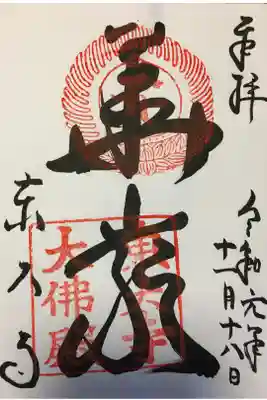 奉拝
令和元年
十一月十八日
華嚴
東大寺
東大寺
大佛殿